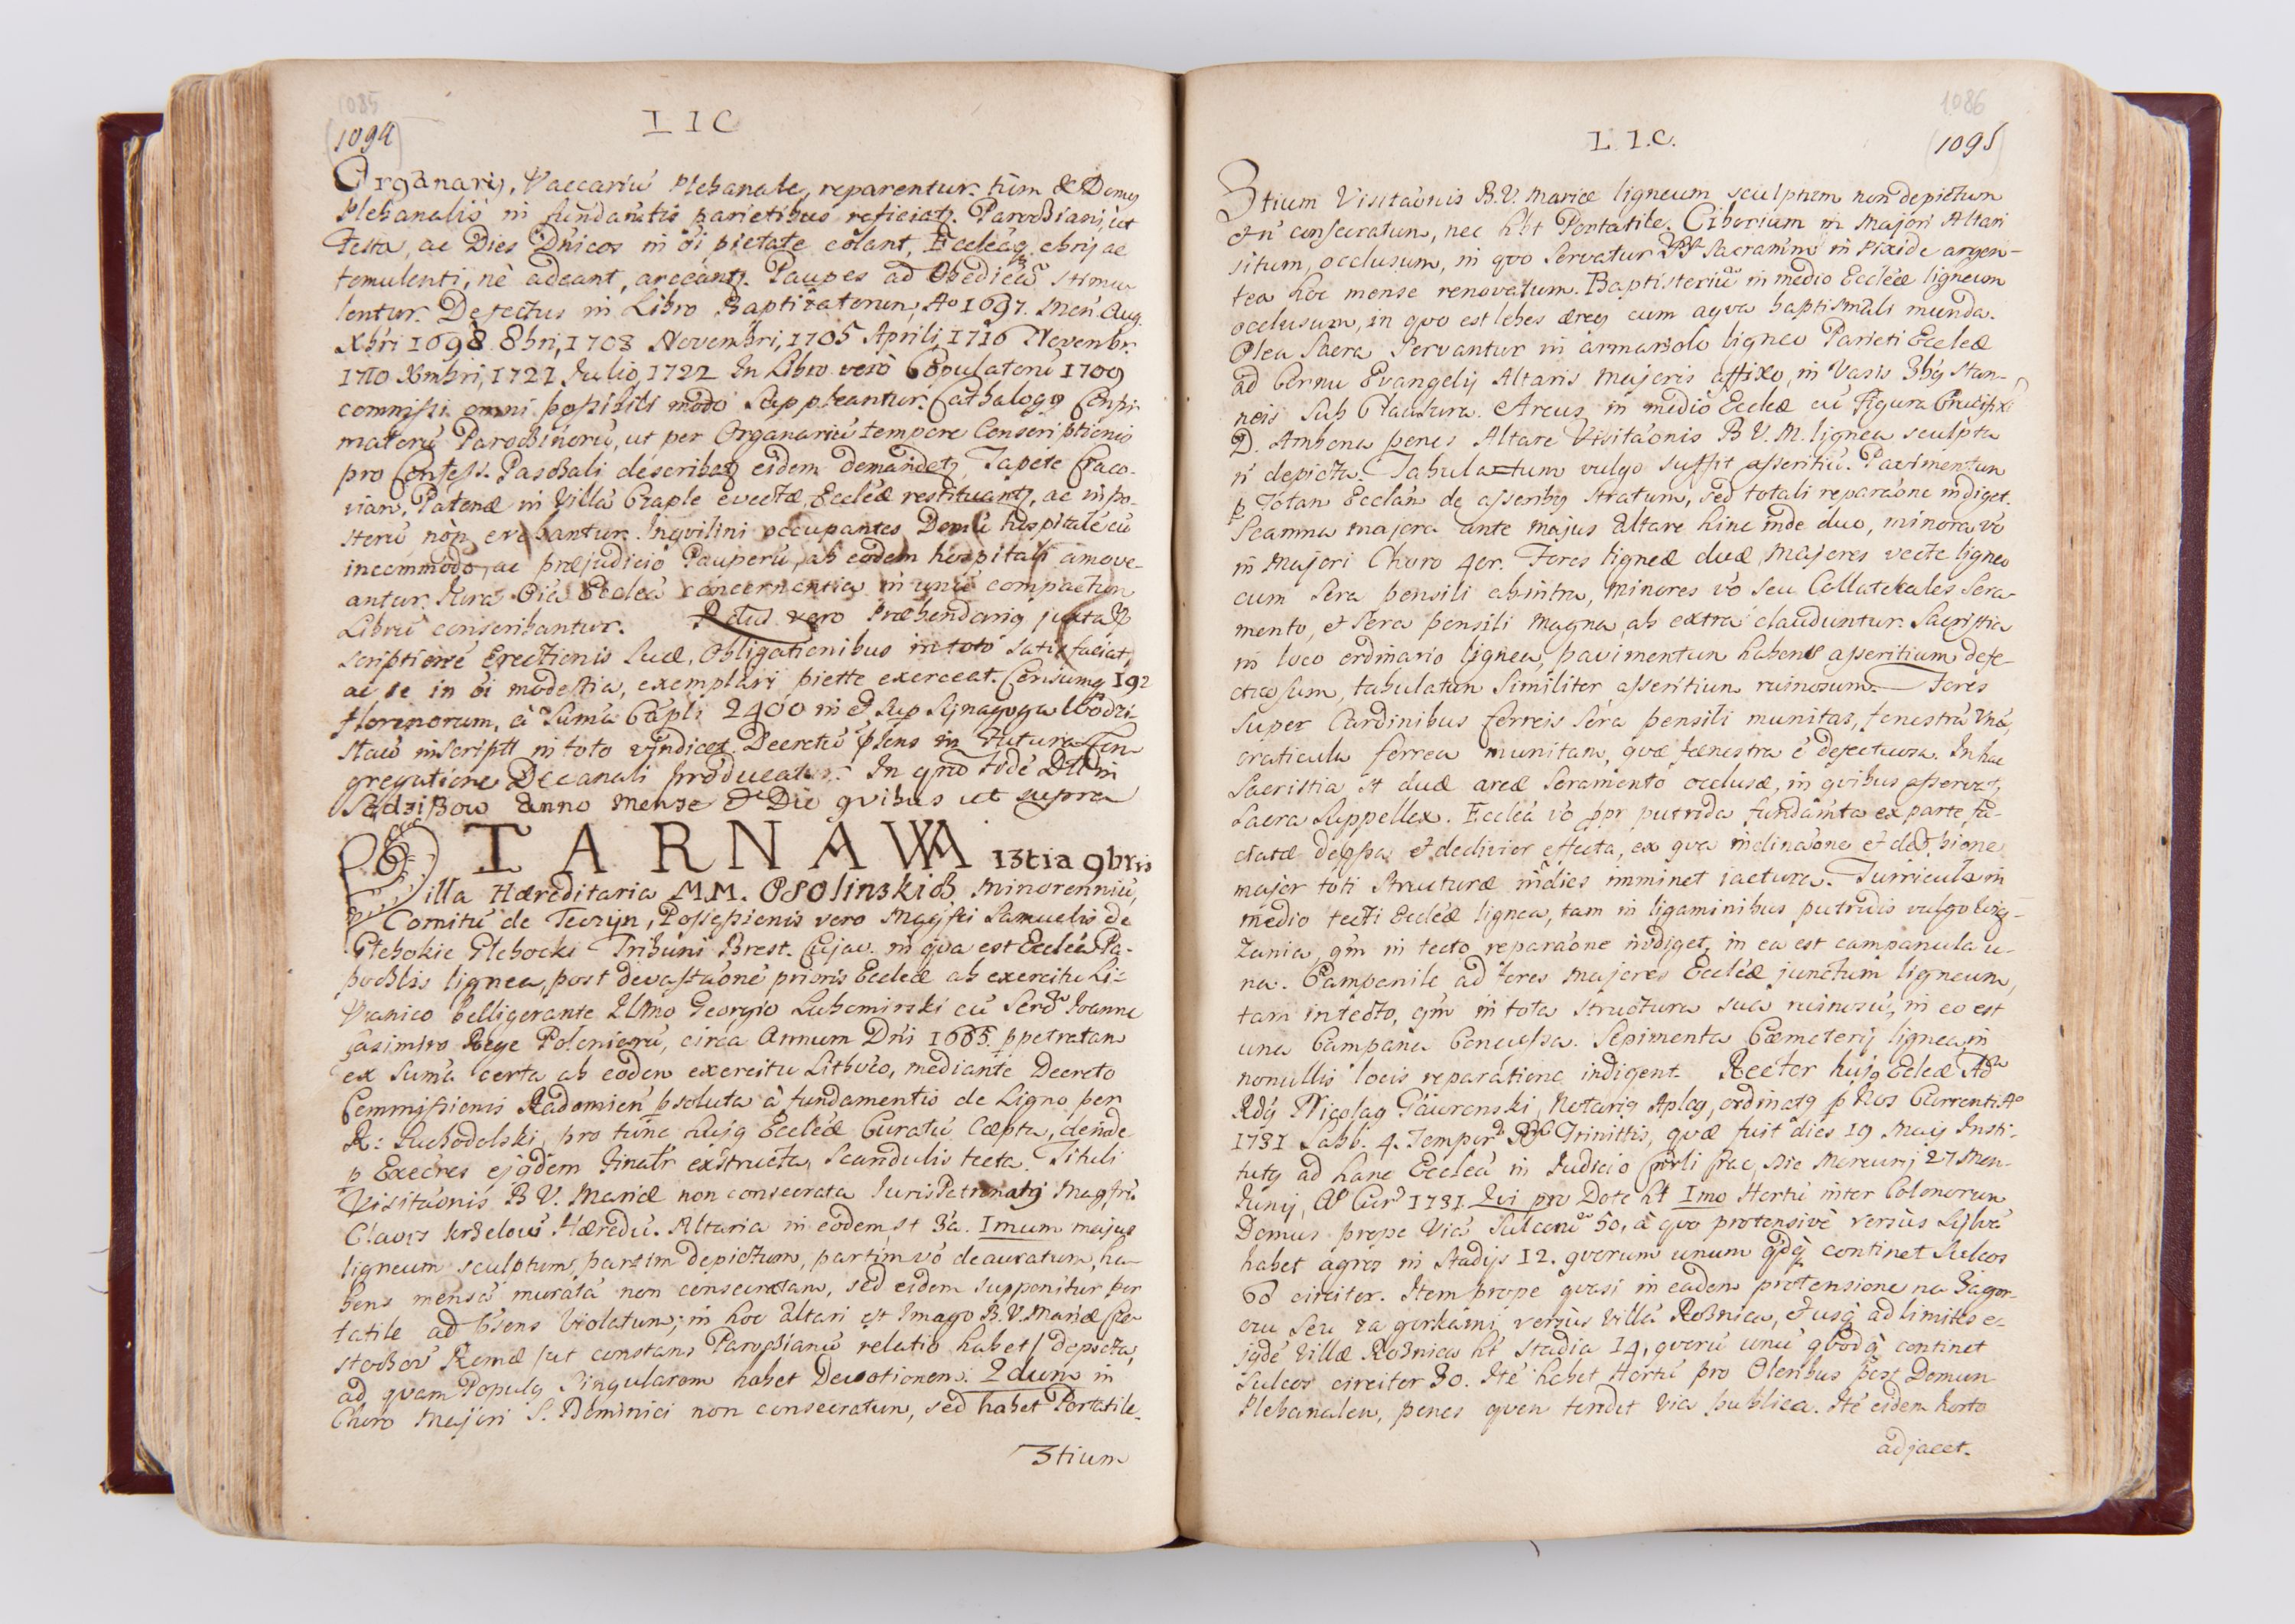 1085
1094
L I C
Organarij, Vaccariũ Plebanale, reparentur. tùm & Domus
Plebanalis in fundamtis parietibus reficiatz. Parochiani, ut
Festa, ac Dies Dnicos in oi pietate colant, Eccleãq ebrij ac
temulenti, nè adeant, arceantz. Paupes ad Obedieã stimu
lentur. Defectus in Libro Baptizatorum, Ao 1697. Men. Aug.
Xbri 1698 8bri, 1703 Novembri, 1705 Aprili, 1716 Novembr.
1710 Xmbri, 1721 Julio, 1722 In Libro verò Copulatorũ 1709
commissi omni possibili modo Suppleantur. Cathalogo Confir
matorũ Parochianorũ, ut per Organariũ tempore Conscriptionis
pro Confess. Paschali describatz eidem demandetz Tapete Craco-
vian, Patenæ in Villã Czaple evectæ, Eccleæ restituantz, ac inpo-
sterũ nòn evehantur. Inqvilini occupantes Domũ hospitalẽ cũ
incommodo, ac præjudicio Pauperũ, ab eodem hospitali amove-
antur. Jura Oia Eccleã concernentia in unũ compactum
Librũ conscribantur. Rdus vero Præbendarig juxta
scriptionẽ Erectionis suæ, Obligationibus in totò satisfaciat,
ac se in oi modestia, exemplari piette exerceat. Censumq 192
florenorum, à Sum̃a Capli 2400 in et sup Synagoga Wodzi-
slaw inscripti in toto vindicet. Decretũ pñs in futura Con
gregatione Decanali producatur. In qrũ fidẽ Dttm in
Sędziszow Anno Mense et Die qvibus ut supra
T A R N A W A 13tia 9bris
Villa Hæreditaria M.M. Ossolinskich Minorenniũ,
Comitũ de Teczyn, Possessionis vero Magfici Samuelis de
Głebokie Głebocki Tribuni Brest. Cujav. in qva est Ecclẽa Pa-
rochlis lignea, post devastãonẽ prioris Eccleæ ab exercitu Li-
thvanico belligerante Illmo Georgio Lubomirski cũ Sermo Joanne
Casimiro Rege Poloniarũ, circa Annum Dni 1665. ppetratam
ex Suma certa ab eodem exercitu Lithvco, mediante Decreto
Commissionis Radomien psoluta à fundamentis de Ligno per
R: Suchodolski, pro tunc hujg Eccleæ Curatũ Cæpta, deinde
p Exectres ejgdem Finalr exstructa, Scandulis tecta. Tituli
Visitãonis B V. Mariæ non consecrata Juris Patronatg Magfrũ
Clavis Xrzelow Hæredũ. Altaria in eodem st 3ã. Imum majus
ligneum sculptum, partim depictum, partim vò deauratum, ha-
bens mensã muratã non consecratam, sed eidem supponitur por
tatile ad psens Violatum; in hoc altari est Imago B.V. Mariæ Cze
stochow Romæ /ut constans Parochianũ relatio habet/ depicta,
ad qvam Populg Singularem habet Devotionem. 2dum in
Choro Majori S. Dominici non consecratum, sed habet Portatile.
3tium
1086
1095
L I.C.
3tium Visitãonis B.V. Mariæ ligneum sculptum non depictum
et ñ consecratum, nec hbt Portatile. Ciborium in Majori Altari
situm, occlusum, in qvo servatur SSmum Sacramm in Pixide argen-
tea hoc mense renovatum. Baptisteriũ in medio Eccleæ ligneum
occlusum, in qvo est lebes æreg cum aqva baptismali munda.
Olea Sacra servantur in armariolo ligneo Parieti Eccleæ
ad Cornu Evangelij Altaris Majoris affixo, in Vasis 3bg stan-
neis sub Clausura. Arcus in medio Eccleæ cũ figura Crucifixi
D. Ambona penes Altare Visitãonis B V. M. lignea sculpta
ñ depicta. Tabulatum vulgo suffit asseritiũ. Pavimentum
p Totam Ecclãm de asseribg stratum, sed totali reparãone indiget.
Scamna majora ante majus altare hinc inde duo, minora vò
in Majori Choro 4or. Fores ligneæ duæ, Majores vecte ligneo
cum sera pensili abintra, minores vò seu Collaterales sera-
mento, et sera pensili magna, ab extra clauduntur. Sacristia
in loco ordinario lignea, pavimentum habens asseritium defe-
ctuosum, tabulatum similiter asseritium ruinosum. Fores
super Cardinibus ferreis sera pensili munitas, fenestrã unã,
craticula ferrea munitam, qvæ fænestra ẽ defectuosa. In hac
Sacristia st duæ arcæ seramento occlusæ, in qvibus asservatz
Sacra Suppellex. Ecclẽa vò ppr putrida fundamta ex parte fa-
ciatæ depssa et declivior effecta, ex qva inclinãone et depsione
major toti structuræ indies imminet iactura. Turricula in
medio tecti Eccleæ lignea, tam in ligaminibus putridis vulgo wią-
zania, qm in tecto reparãone indiget, in ea est campanula u-
na. Campanile ad fores majores Eccleæ junctum ligneum,
tam in tecto, qm in tota structura sua ruinosũ, in eo est
una Campana Concussa. Sepimenta Cœmeterij lignea, in
nonullis locis reparatione indigent. Rector hujg Eccleæ Adm
Rdg Nicolag Gaworonski, Notarig Aplcg, ordinatg p hos Currenti Ao
1731 Sabb. 4. Tempor. SSmæ Trinittis, qvæ fuit dies 19 Maij Insti-
tutg ad hanc Eccleã in Judicio Cprli Crac, Die Mercurij 27 Men-
Junij, Ao Curr 1731. Qvi pro Dote ht Imo Hortũ inter Colonorum
Domus prope Viã Sulcorũ 50, à qvo protensivè versùs Sylvã
habet agros in Stadijs 12. qvorum unum qdq continet Sulcos
60 circiter. Item prope qvasi in eadem protensione na Zagor-
czu seu za gorkami, versùs villã Rożnica, et usq ad limites e-
jqdẽ Villæ Rożnica ht stadia 14, qvorũ unũ qvodq continet
Sulcos circiter 30. Itẽ habet Hortũ pro Oleribus post Domum
Plebanalem, penes qvem tendit via publica. Itẽ eidem horto
adjacet.